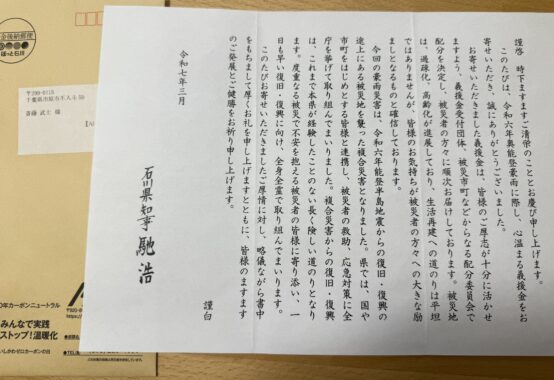 謹啓　時下ますますご清栄のこととお慶び申し上げます。
このたびは、令和六年奥能登豪雨に際し、心温まる義援金をお
寄せいただき、誠にありがとうございました。
お寄せいただきました義援金は、皆様のご厚志が十分に活かせ
ますよう、義援金受付団体、被災市町などからなる配分委員会で
配分を決定し、被災者の方々に順次お届けしております。被災地
は、過疎化、高齢化が進展しており、生活再建への道のりは平坦
ではありませんが、皆様のお気持ちが被災者の方々への大きな励
ましとなるものと確信しております。
今回の豪雨災害は、令和六年能登半島地震からの復旧・復興の
途上にある被災地を襲った複合災害となりました。県では、国や
市町をはじめとする皆様と連携し、被災者の救助、応急対策に全
庁を挙げて取り組んでまいりました。複合災害からの復旧・復興
は、これまで本県が経験したことのない長く険しい道のりとなり
ます。度重なる被災で不安を抱える被災者の皆様に寄り添い、一
日も早い復旧・復興に向け、全身全霊で取り組んでまいります。
このたびお寄せいただきましたご厚情に対し、略儀ながら書中
をもちまして厚くお礼を申し上げますとともに、皆様のますます
のご発展とご健勝をお祈り申し上げます。
謹白
令和七年三月
石川県知事　馳　浩
金後納郵便
ほっと石川
〒290-0115
斎藤 武士 様
0年カーボンニュートラル
みんなで実践
ストップ！温暖化
いしかわゼロカーボンの日